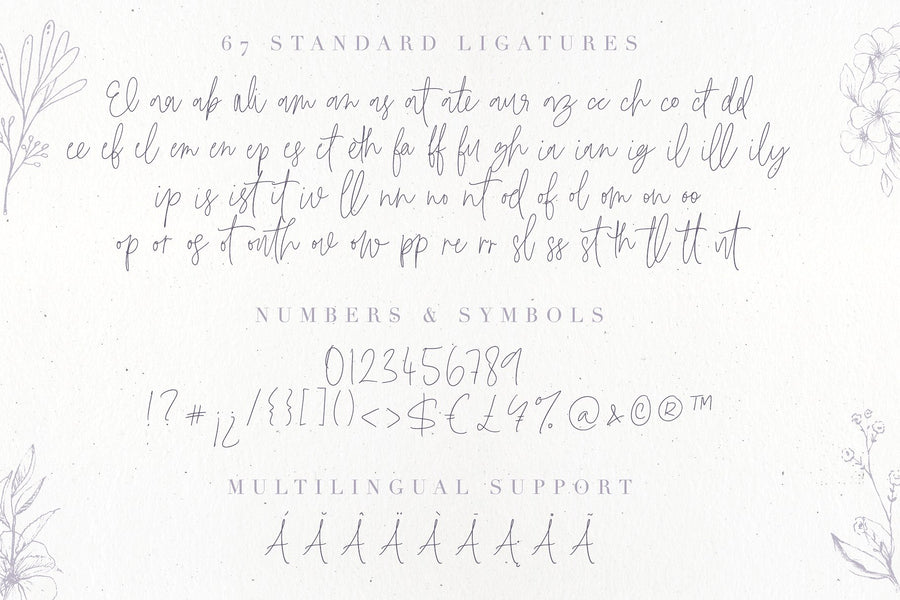 67 STANDARD LIGATURES
El aa ab ali am an as at ate aur az cc ch co ct dd
ee ef el em en ep es et eth fa ff fu gh ia ian ig il ill ily
ip is ist it iv ll nn no nt od of ol om on oo
op or os ot outh ov ow pp re rr sl ss st th tl tt ut
NUMBERS & SYMBOLS
0123456789
!?#¡¿/{}[]()<>$€£¥%@&©®™
MULTILINGUAL SUPPORT
Á Ă Â Ä À Ā Ą Å Ã